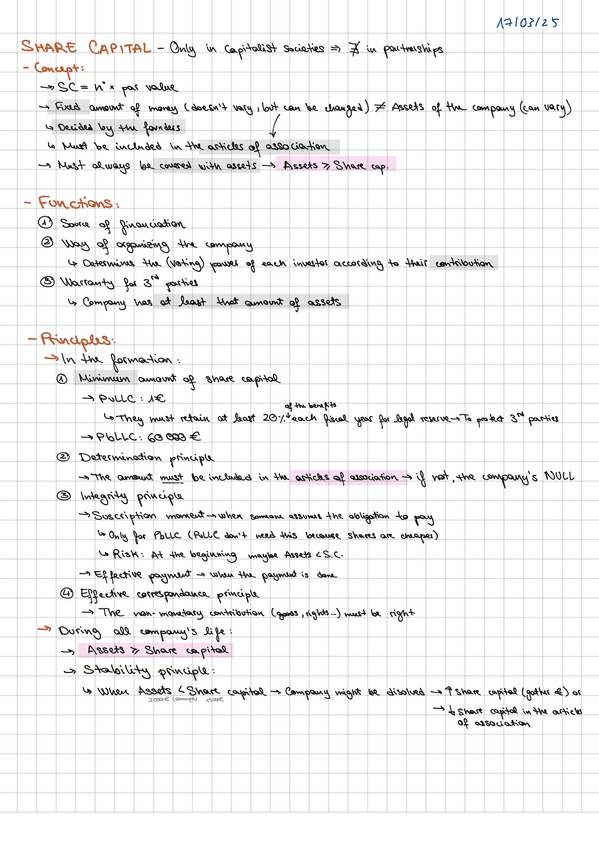 17/03/25
SHARE CAPITAL - Only in capitalist societies ⇒ ∄ in partnerships
- Concept:
→ SC = nº × par value
→ Fixed amount of money (doesn't vary, but can be changed) ≠ Assets of the company (can vary)
↳ Decided by the founders
↳ Must be included in the articles of association
→ Must always be covered with assets → Assets ≥ Share cap.
- Functions:
① Source of financiation
② Way of organizing the company
↳ Determines the (voting) power of each investor according to their contribution
③ Warranty for 3rd parties
↳ Company has at least that amount of assets
- Principles:
→ In the formation:
① Minimum amount of share capital
→ PvLLC: 1€
of the benefits
↳ They must retain at least 20% each fiscal year for legal reserve → To protect 3rd parties
→ PbLLC: 60 000 €
② Determination principle
→ The amount must be included in the articles of association → if not, the company's NULL
③ Integrity principle
→ Suscription moment → when someone assumes the obligation to pay
↳ Only for PbLLC (PvLLC don't need this because shares are cheaper)
↳ Risk: At the beginning maybe Assets < S.C.
→ Effective payment → when the payment is done
④ Effective correspondance principle
→ The non-monetary contribution (goods, rights...) must be right
→ During all company's life:
→ Assets ≥ Share capital
→ Stability principle:
↳ When Assets < Share capital → Company might be disolved → ↑ Share capital (gather €) or
→ ↓ Share capital in the articles
of association